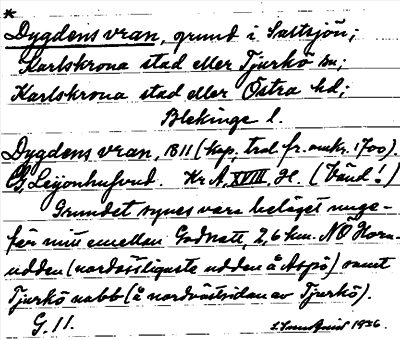 *
Dygdens vran, grund i Saltsjön;
Karlskrona stad eller Tjurkö sn;
Karlskrona stad eller Östra hd;
Blekinge l.
Dygdens vran, 1811 (kop, trol. fr. omkr. 1700).
G. Leijonhufvud. Kr A, XVIII, H. (Vänd!)
Grundet synes vara beläget unge-
fär mitt emellan Godnatt, 2,6 km. NÖ Horn-
udden (nordöstligaste udden å Aspö) samt
Tjurkö nabb (å nordvästsidan av Tjurkö).
G. 11. 1936.